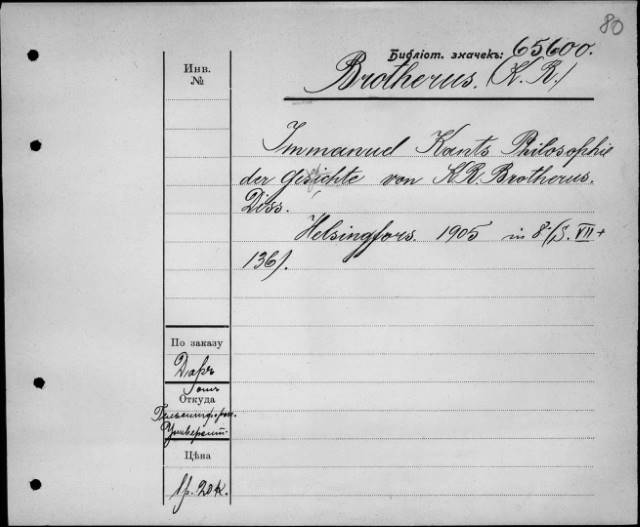 80
Библіот. значекъ: 65600.
Инв.
№
Brotherus. (K. R.)
Immanuel Kants Philosophie
der Gesichte von K.R. Brotherus.
Diss.
Helsingfors. 1905 in 8º (S. VII +
136).
По заказу
Даръ
отъ
Откуда
Гельсингфорс.
Университ.
Цѣна
1р. 20к.